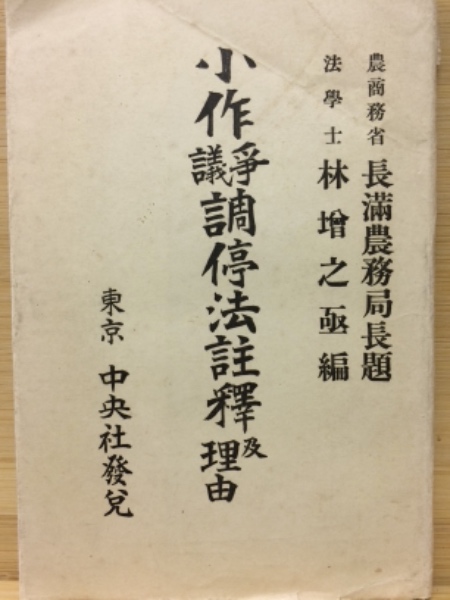 農商務省 長滿農務局長題
法學士 林增之亟編
小作爭議調停法註釋及理由
東京 中央社發兌